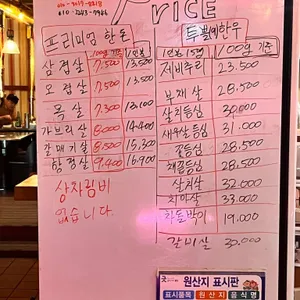 PRICE
프리미엄 한돈
100g 기준 1인분
삼겹살 7,500 13,500
오겹살 7,500 13,500
목살 7,300 13,100
가브리살 8,000 14,400
갈매기살 8,500 15,300
항정살 9,400 16,900
상차림비
없습니다.
특별한 한우
1인분 150g 100g 기준
제비추리 23,500
부채살 28,500
살치살 30,000
새우살등심 31,000
꽃등심 28,500
채끝등심 28,500
살치살 32,000
치마살 33,000
차돌박이 19,000
갈비살 30,000
원산지 표시판
표시품목 원산지 음식명